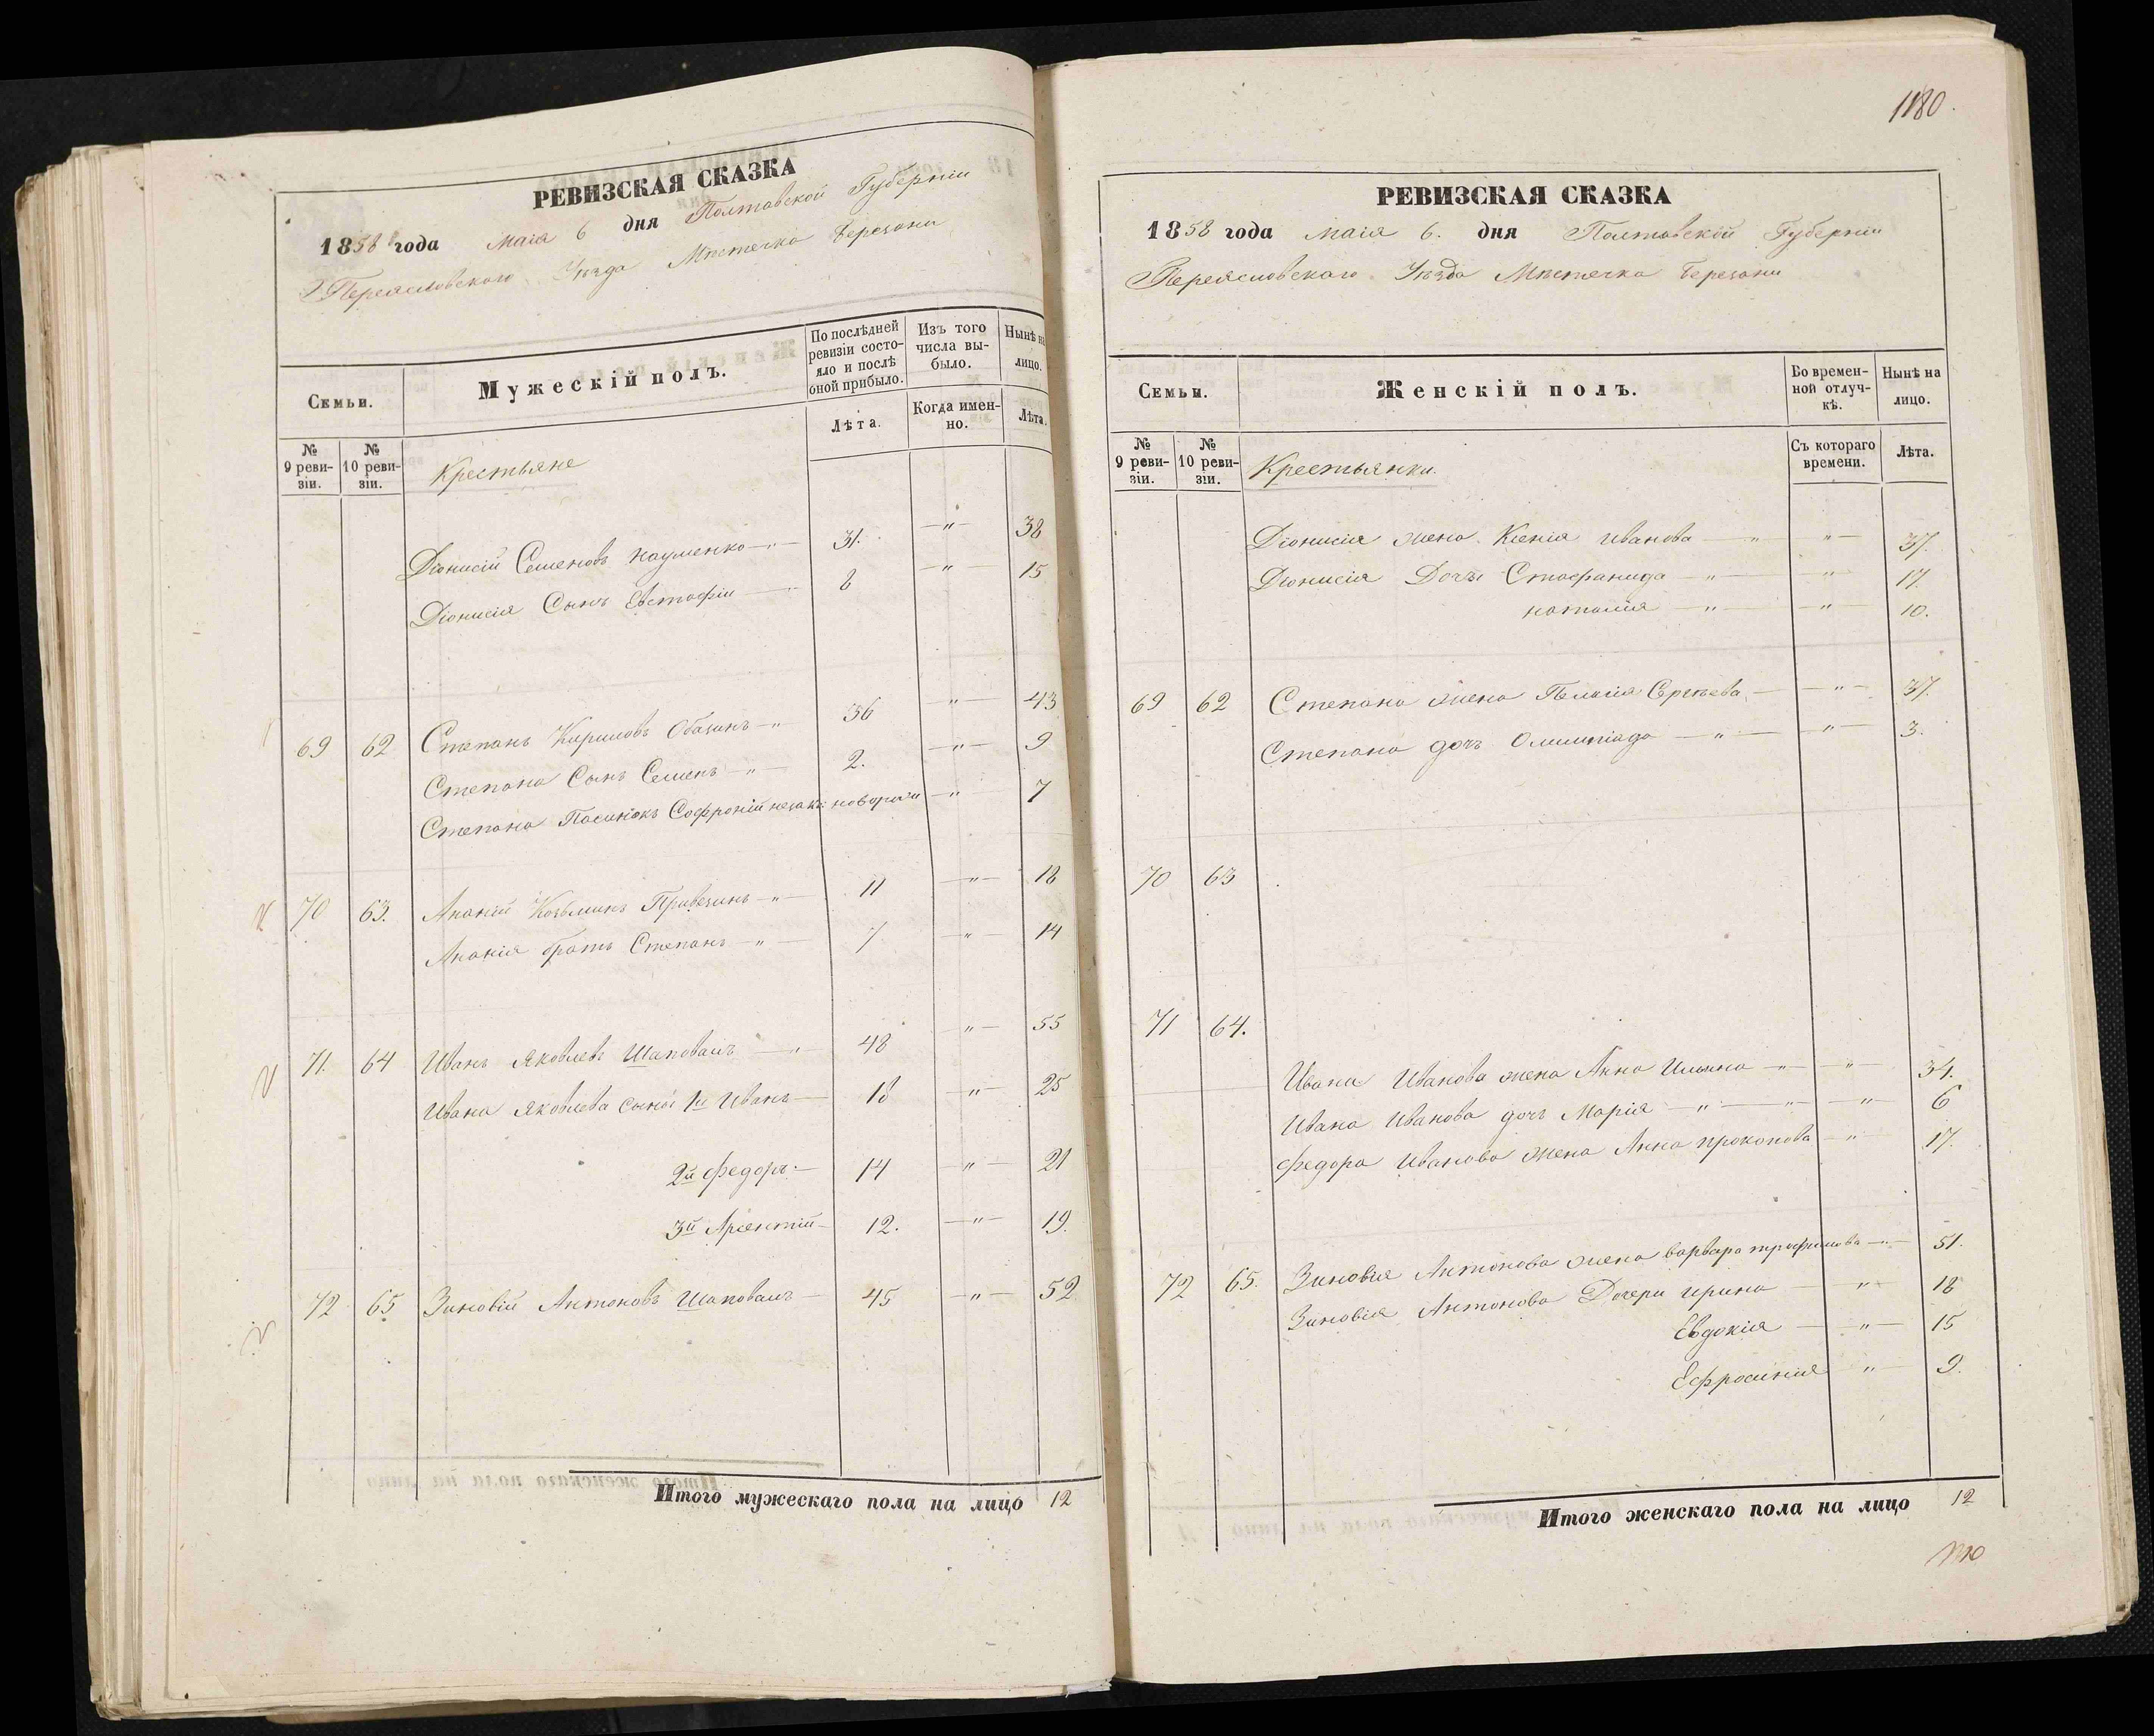 РЕВИЗСКАЯ СКАЗКА
1858 года маія 6 дня Полтавской Губерніи
Переясловскаго Уѣзда Мѣстечка Березани
Семьи.
Мужескій полъ.
По послѣдней ревизіи состояло и послѣ оной прибыло.
Изъ того числа выбыло.
Нынѣ на лицо.
№ 9 ревизіи.
№ 10 ревизіи.
Крестьяне
Лѣта.
Когда именно.
Лѣта.
Діонисій Семеновъ Науменко —"— 31. —"— 38
Діонисія Сынъ Евстафіи — 8 —"— 15
69 62 Степанъ Кириловъ —"— 36 —"— 43
Степана Сынъ Семенъ —"— 2. —"— 9
Степана Пасинокъ Софроній —"— 7
70 63. Ананій Козьминъ —"— 11 —"— 18
Ананія братъ Степанъ —"— 7 —"— 14
71. 64 Иванъ Яковлевъ Шаповалъ —"— 48 —"— 55
Ивана Яковлева сыны 1й Иванъ — 18 —"— 25
2й Федоръ — 14 —"— 21
3й Арсентій — 12. —"— 19.
72 65 Зиновій Антоновъ Шаповалъ — 45 —"— 52
Итого мужескаго пола на лицо 12
1180.
РЕВИЗСКАЯ СКАЗКА
1858 года маія 6. дня Полтавской Губерніи
Переясловскаго Уѣзда Мѣстечка Березани
Семьи.
Женскій полъ.
Во временной отлучкѣ.
Нынѣ на лицо.
№ 9 ревизіи.
№ 10 ревизіи.
Крестьянки.
Съ котораго времени.
Лѣта.
Діонисія жена Ксенія Иванова —"— —"— 37.
Діонисія Дочѣ Стефанида —"— —"— 17.
Наталія —"— —"— 10.
69 62 Степана жена Сергѣева — —"— 37.
Степана дочь Олимпіада —"— —"— 3.
70 63
71 64.
Ивана Иванова жена Анна Ильина —"— —"— 34.
Ивана Иванова дочь Марія —"— —"— —"— 6
Федора Иванова жена Анна Прокопова —"— 17.
72 65. Зиновія Антонова жена Варвара Трофимова —"— 51.
Зиновія Антонова Дочери Ирина — —"— 18
Евдокія — —"— 15
Ефросинія —"— 9.
Итого женскаго пола на лицо 12